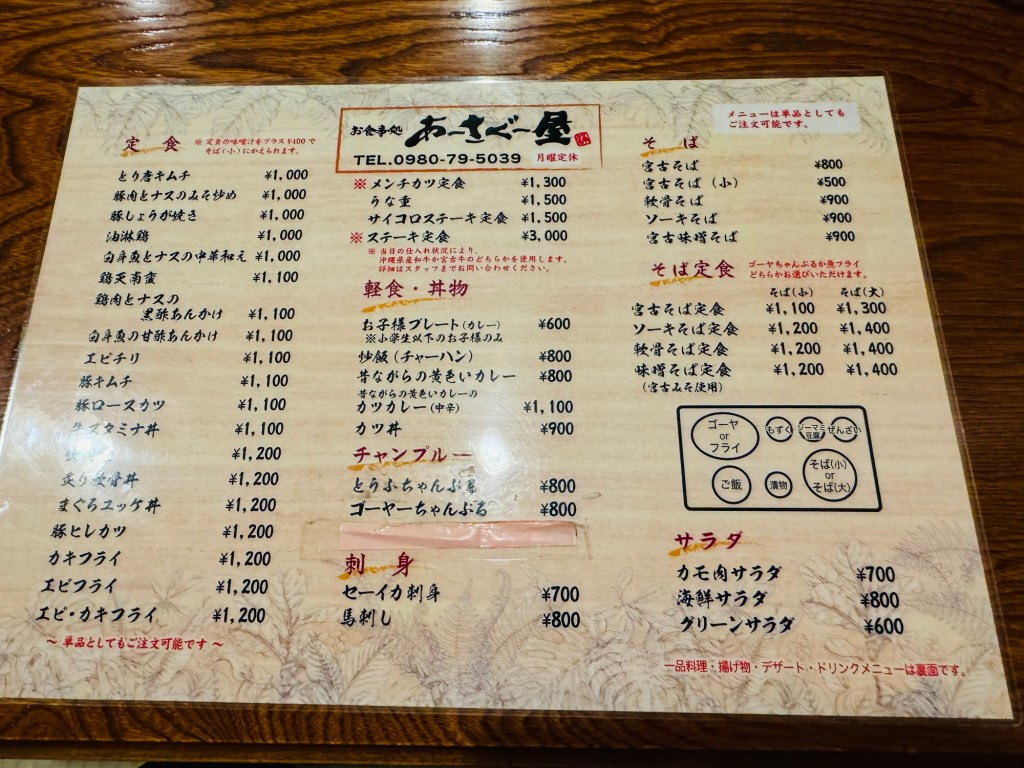 定食
※ 定食の味噌汁をプラス¥400で
そば(小)にかえられます。
とり唐キムチ ¥1,000
豚肉とナスのみそ炒め ¥1,000
豚しょうが焼き ¥1,000
油淋鶏 ¥1,000
白身魚とナスの中華和え ¥1,000
鶏天南蛮 ¥1,100
鶏肉とナスの
黒酢あんかけ ¥1,100
白身魚の甘酢あんかけ ¥1,100
エビチリ ¥1,100
豚キムチ ¥1,100
豚ロースカツ ¥1,100
牛スタミナ丼 ¥1,100
¥1,200
炙り軟骨丼 ¥1,200
まぐろユッケ丼 ¥1,200
豚ヒレカツ ¥1,200
カキフライ ¥1,200
エビフライ ¥1,200
エビ・カキフライ ¥1,200
～ 単品としてもご注文可能です ～
お食事処 あーさぐー屋
TEL.0980-79-5039 月曜定休
※ メンチカツ定食 ¥1,300
うな重 ¥1,500
サイコロステーキ定食 ¥1,500
※ ステーキ定食 ¥3,000
※ 当日の仕入れ状況により、
沖縄県産和牛か宮古牛のどちらかを使用します。
詳細はスタッフまでお問い合わせください。
軽食・丼物
お子様プレート(カレー) ¥600
※小学生以下のお子様のみ
炒飯(チャーハン) ¥800
昔ながらの黄色いカレー ¥800
昔ながらの黄色いカレーの
カツカレー(中辛) ¥1,100
カツ丼 ¥900
チャンプルー
とうふちゃんぷる ¥800
ゴーヤーちゃんぷる ¥800
刺身
セーイカ刺身 ¥700
馬刺し ¥800
メニューは単品としても
ご注文可能です。
そば
宮古そば ¥800
宮古そば(小) ¥500
軟骨そば ¥900
ソーキそば ¥900
宮古味噌そば ¥900
そば定食
ゴーヤちゃんぷるか魚フライ
どちらかお選びいただけます。
そば(小) そば(大)
宮古そば定食 ¥1,100 ¥1,300
ソーキそば定食 ¥1,200 ¥1,400
軟骨そば定食 ¥1,200 ¥1,400
味噌そば定食 ¥1,200 ¥1,400
(宮古みそ使用)
ゴーヤ
or
フライ
もずく
ジーマミ
豆腐
ぜんざい
ご飯
漬物
そば(小)
or
そば(大)
サラダ
カモ肉サラダ ¥700
海鮮サラダ ¥800
グリーンサラダ ¥600
一品料理・揚げ物・デザート・ドリンクメニューは裏面です。